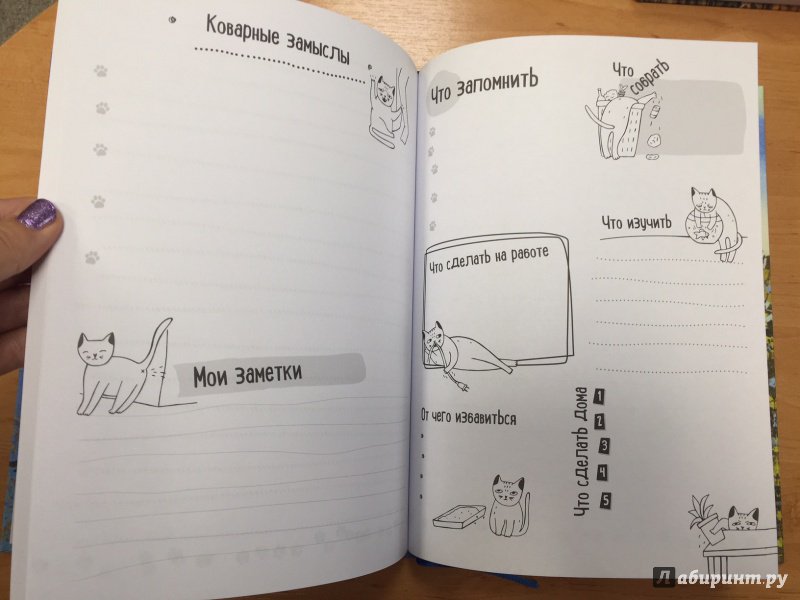 Коварные замыслы
Мои заметки
Что запомнить
Что
собрать
Что изучить
Что сделать на работе
От чего избавиться
Что сделать дома
1
2
3
4
5
Лабиринт.ру